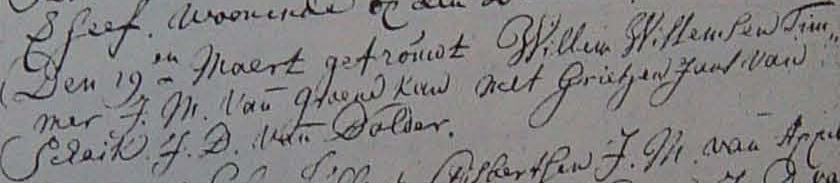 Eheef. woonende op den
Den 19en Maert getrouwt Willem Willemsen Tim„
mer J. M. van Groenekan met Grietjen Jans van
Schaik. J. D. van Dolder.
Gijsberthsen J. M. van